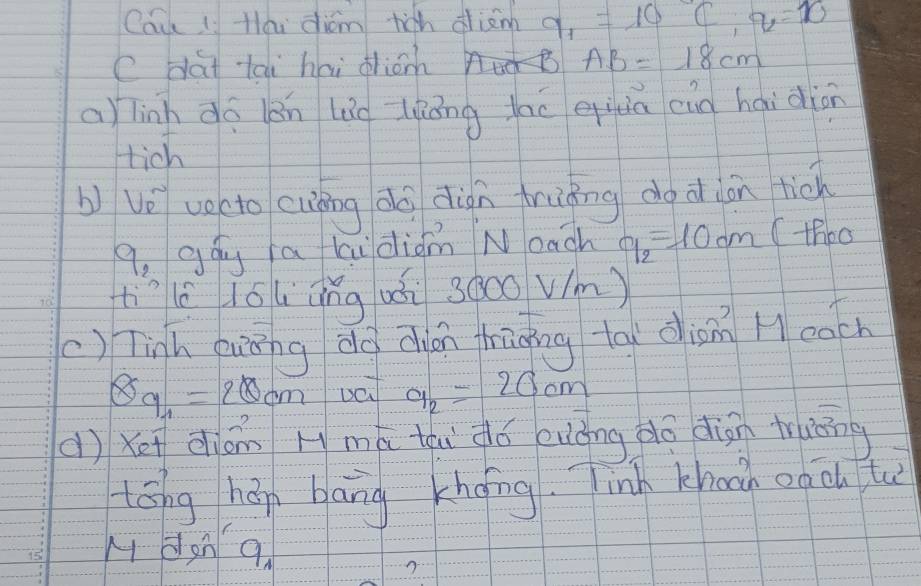 Câu 1: Hai điểm tích điểm q₁ = 10 C, q₂ = 10
C đặt tại hai điểm A và B AB = 18 cm
a) Tính độ lớn lực tương tác giữa của hai điện
tích
b) Vẽ vecto cường độ điện trường do điện tích
q₂ gây ra tại điểm N cách q₂ = 10 cm (theo
tỉ lệ ứng với 3000 V/m)
c) Tính cường độ điện trường tại điểm M cách
q₁ = 20 cm và q₂ = 20 cm
d) Xét điểm M mà tại đó cường độ điện trường
tổng hợp bằng không. Tính khoảng cách từ
M đến q₁